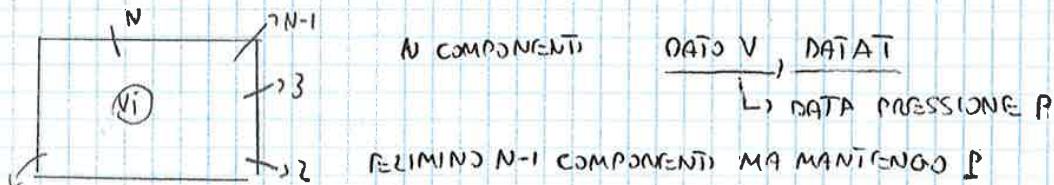 N
N-1
N COMPONENTI
DATO V, DATA T
Vi
3
↳ DATA PRESSIONE P
2
ELIMINO N-1 COMPONENTI MA MANTENGO P